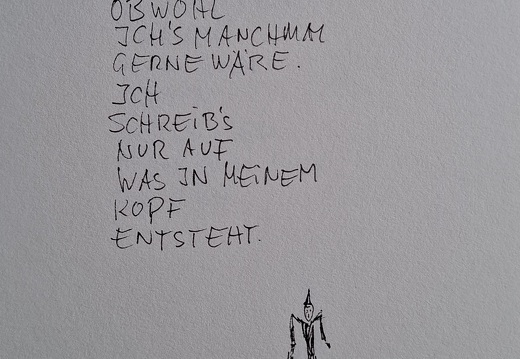 OBWOHL
ICH'S MANCHMAL
GERNE WÄRE.
ICH
SCHREIB'S
NUR AUF
WAS IN MEINEM
KOPF
ENTSTEHT.